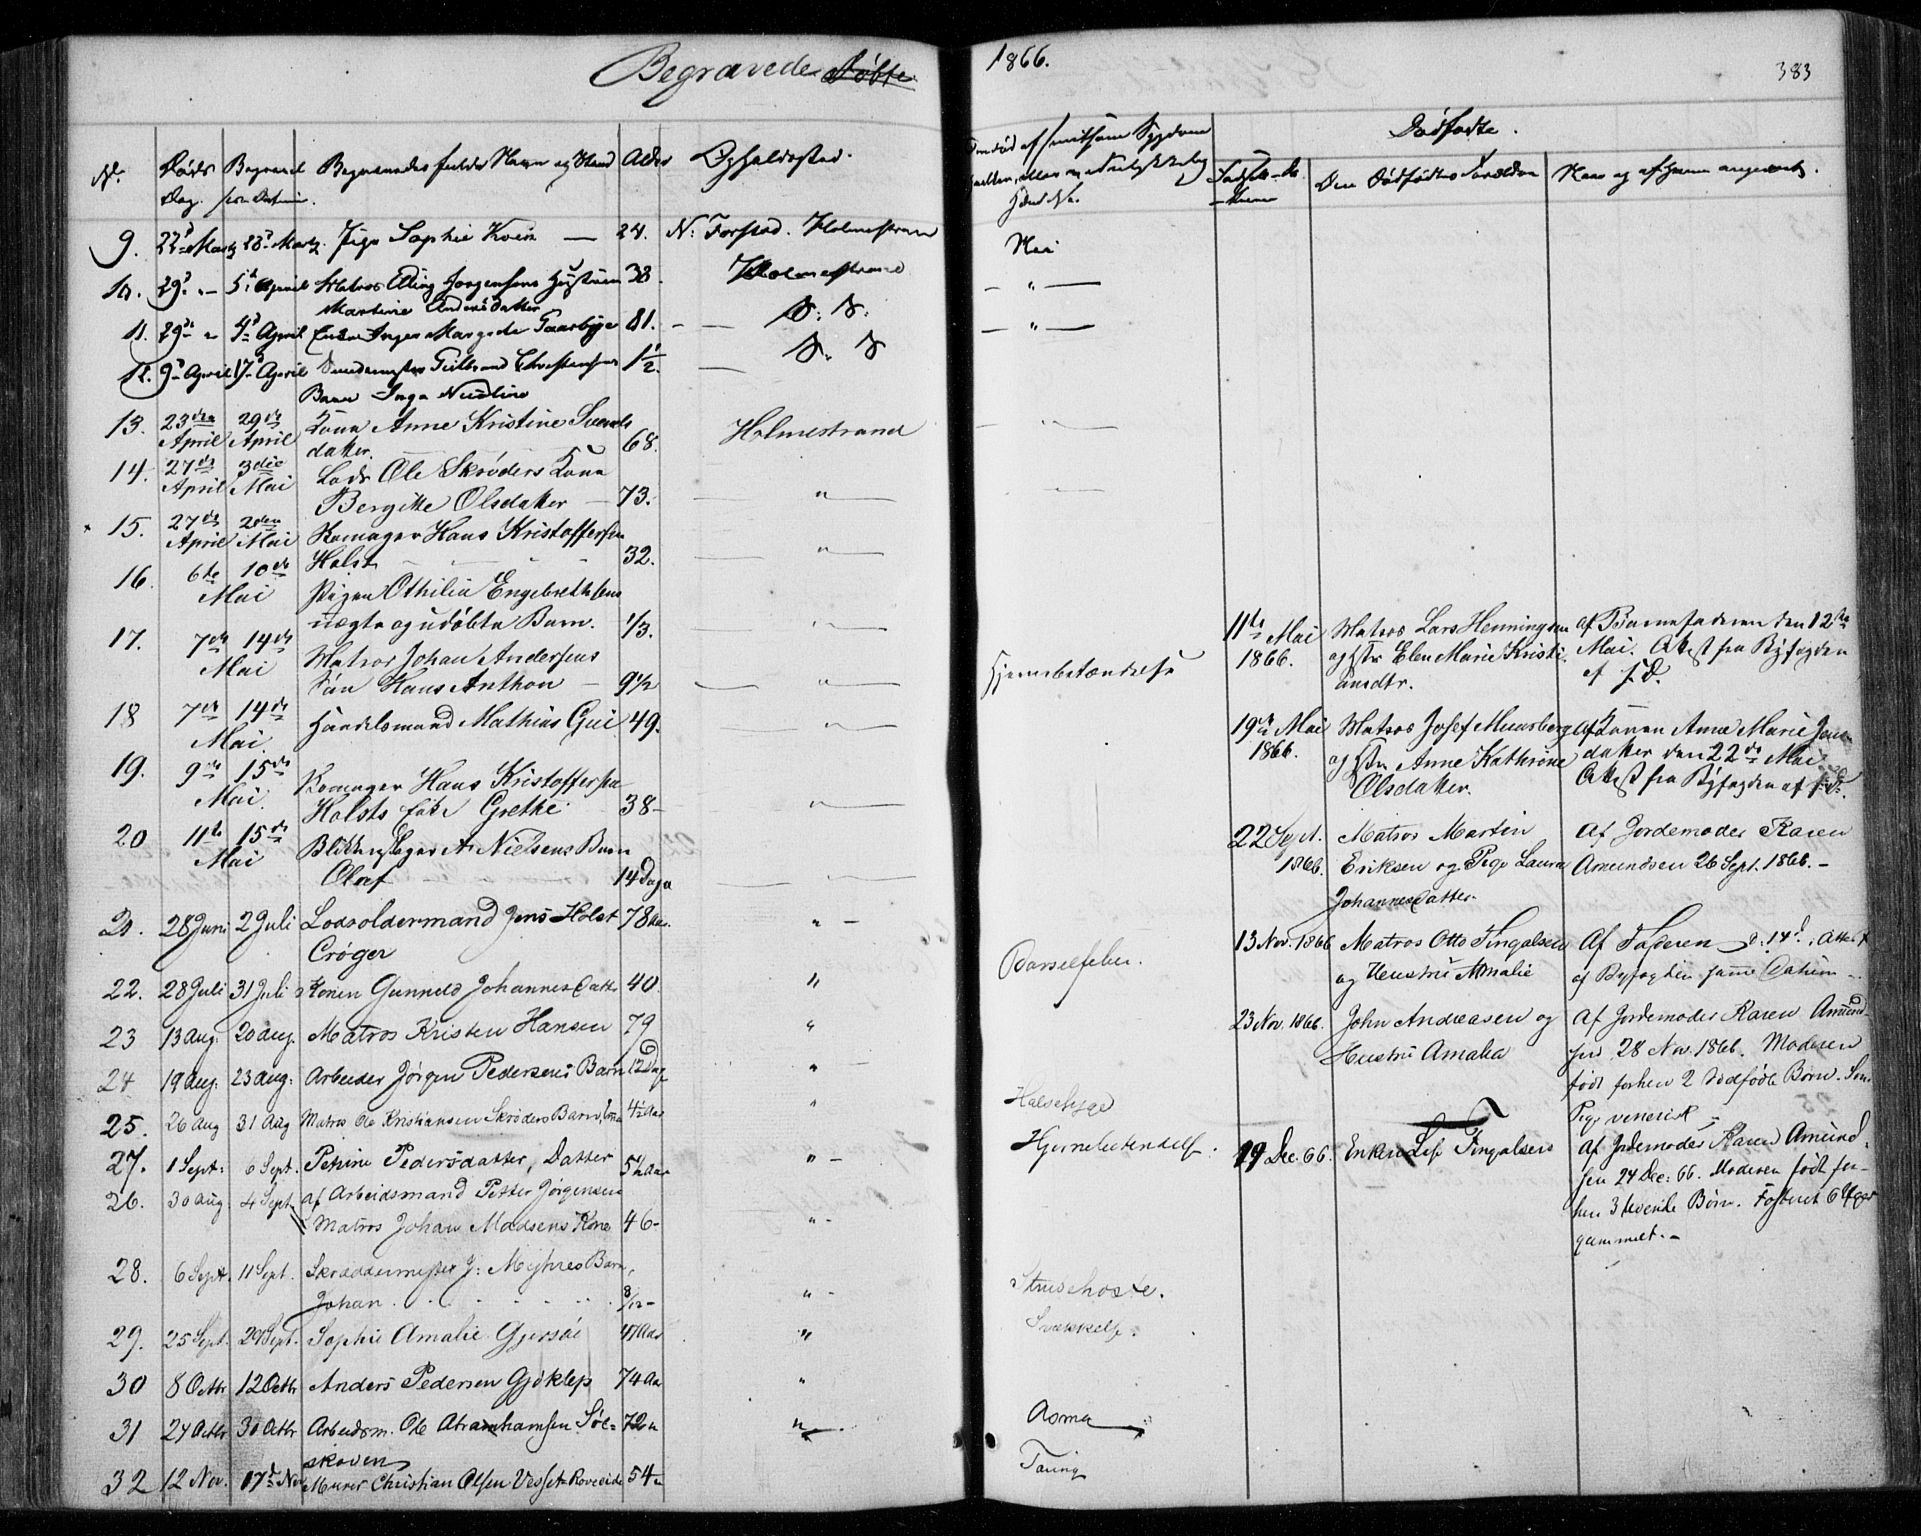 Begravede Døbte
1866.
383
No.
Døds Dag.
Begravel
Begravedes fulde Navn og Stand
Alder
Opholdssted.
Om død af smitsom Sygdom
Dødfødte.
Den Dødfødtes Forældre
9. 22d Marts 28d Marts. Pige Sophie Koien — 24. N: Forstad. Holmestrand Nei
10. 29d " - 5t April Matros Elling Jørgensens Hustrue 38. Holmestrand — " —
Martine Andersdatter
11. 29d " 4d April Enken Inger Margrete Gaarbye 81. - — D: D: — " —
12. 9d April 17d April Christensens 1 1/2. — D: D
Barn Inga Nicoline
13. 23den April 29de April Kona Anne Kristine Svends 68. Holmestrand - " —
datter.
14. 27de April 3die Mai Lods Ole Skrøders Kona
Bergitte Olsdatter — 73. — " —
15. 27de April 2den Mai Kornager Hans Kristoffersen
Holst — 32. — " —
16. 6te 10de Mai Pigen Othilia Engebrethsens
uægte og udøbte Barn. 1/3. — " —
17. 7de 14de Mai Matros Johan Andersens
Søn Hans Anthon — 9 1/2 — " — Hjernebetændelse
18 7de 14de Mai. Handelsmand Mathias Gui 49. — " —
19. 9de 15de Mai. Kornager Hans Kristoffersen
Holsts Enke Grethe 38 - — " —
20 11te 15de Mai Blikkenslager A. Nielsens Barn
Olaf - 14 Dage — " —
21. 28 Juni 2 Juli Lodsoldermand Jens Holst 78 Aar. " -
Crøger
22. 28 Juli 31 Juli Konen Gunnild Johannesdatter 40. " Barselfeber.
23 13 Aug. 20 Aug. Matros Kristen Hansen 79 "
24 19 Aug. 23 Aug. Arbeider Jørgen Pedersens Barn 12 Dage " -
25. 26 Aug 31 Aug Matros Ole Kristiansen Skrøders Barn, 4 1/2 Aar " Halssyge
27. 1 Sept. 6 Sept. Petrine Pedersdatter, Datter 5 1/2 Aar " - Hjernebetændelse.
26. 30 Aug 4 Sept. af Arbeidsmand Petter Jørgensen
Matros Johan Madsens Kone 46 - " -
28. 6 Sept. 11 Sept. Skræddermester J: Myhres Barn,
Johan . . . . . . 8/12 - " - Strubehoste.
29. 25 Sept. 29 Sept. Sophie Amalie Gjersøe 47 Aar " Svækkelse.
30 8 Octbr 12 Octbr Anders Pedersen Gjøklep 74 Aar "
31 24 Octbr 30 Octbr Arbeidsm. Ole Abrahamsen Søl= 72 " " - Asma
skoven
32 12 Nov. 17d Nov Murer Christian Olsen 54 " Tæring
11te Mai 1866. Matros Lars Henningsen
og Hstr Elen Marie Kristi-
ansdtr.
af Barnefaderen den 12te
Mai. Attest fra Byfogden
af s. D.
19de Mai 1866. Matros Josef Munsberg
og Hstr Anne Kathrine
Olsdatter.
af Konen Anne Marie Jens
datter den 22de Mai
Attest fra Byfogden af s. D.
22 Sept. 1866. Matros Martin
Eriksen og Pige Laura
Johannesdatter.
Af Jordemoder Karen
Amundsen 26 Sept. 1866. -
13 Nov. 1866 Matros Otto Fingalsen
og Hustru Amalie
Af Faderen d: 14d. Attest
af Byfogden samme Datum -
23 Nov. 1866. John Andreasen og
Hustru Amalia
Af Jordemoder Karen Amund-
sen 28 Nov. 1866. Moderen
født forhen 2 dødfødte Børn. Som
Pige venerisk -
19 Dec. 66. Enken Fingalsen
Af Jordemoder Karen Amund-
sen 24 Dec: 66. Moderen født for-
hen 3 levende Børn. Fosteret 6 Uger
gammelt. -